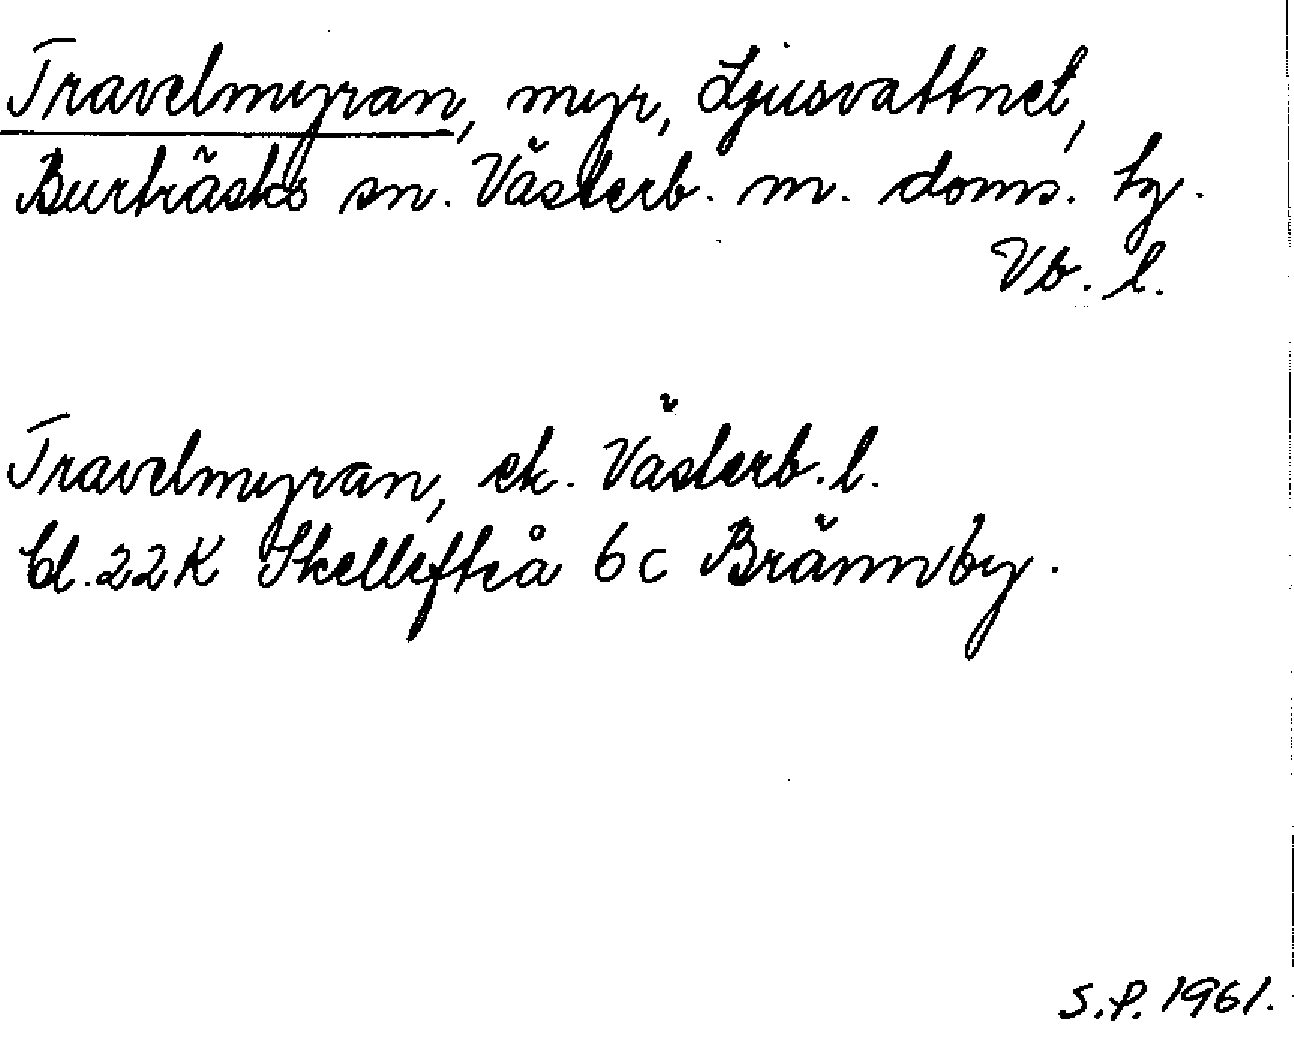 Travelmyran, myr, Ljusvattnet,
Burträsks sn. Västerb. m. doms. tg.
Vb. l.
Travelmyran, ek. Västerb. l.
bl. 22K Skellefteå 6c Brännby.
S.P. 1961.